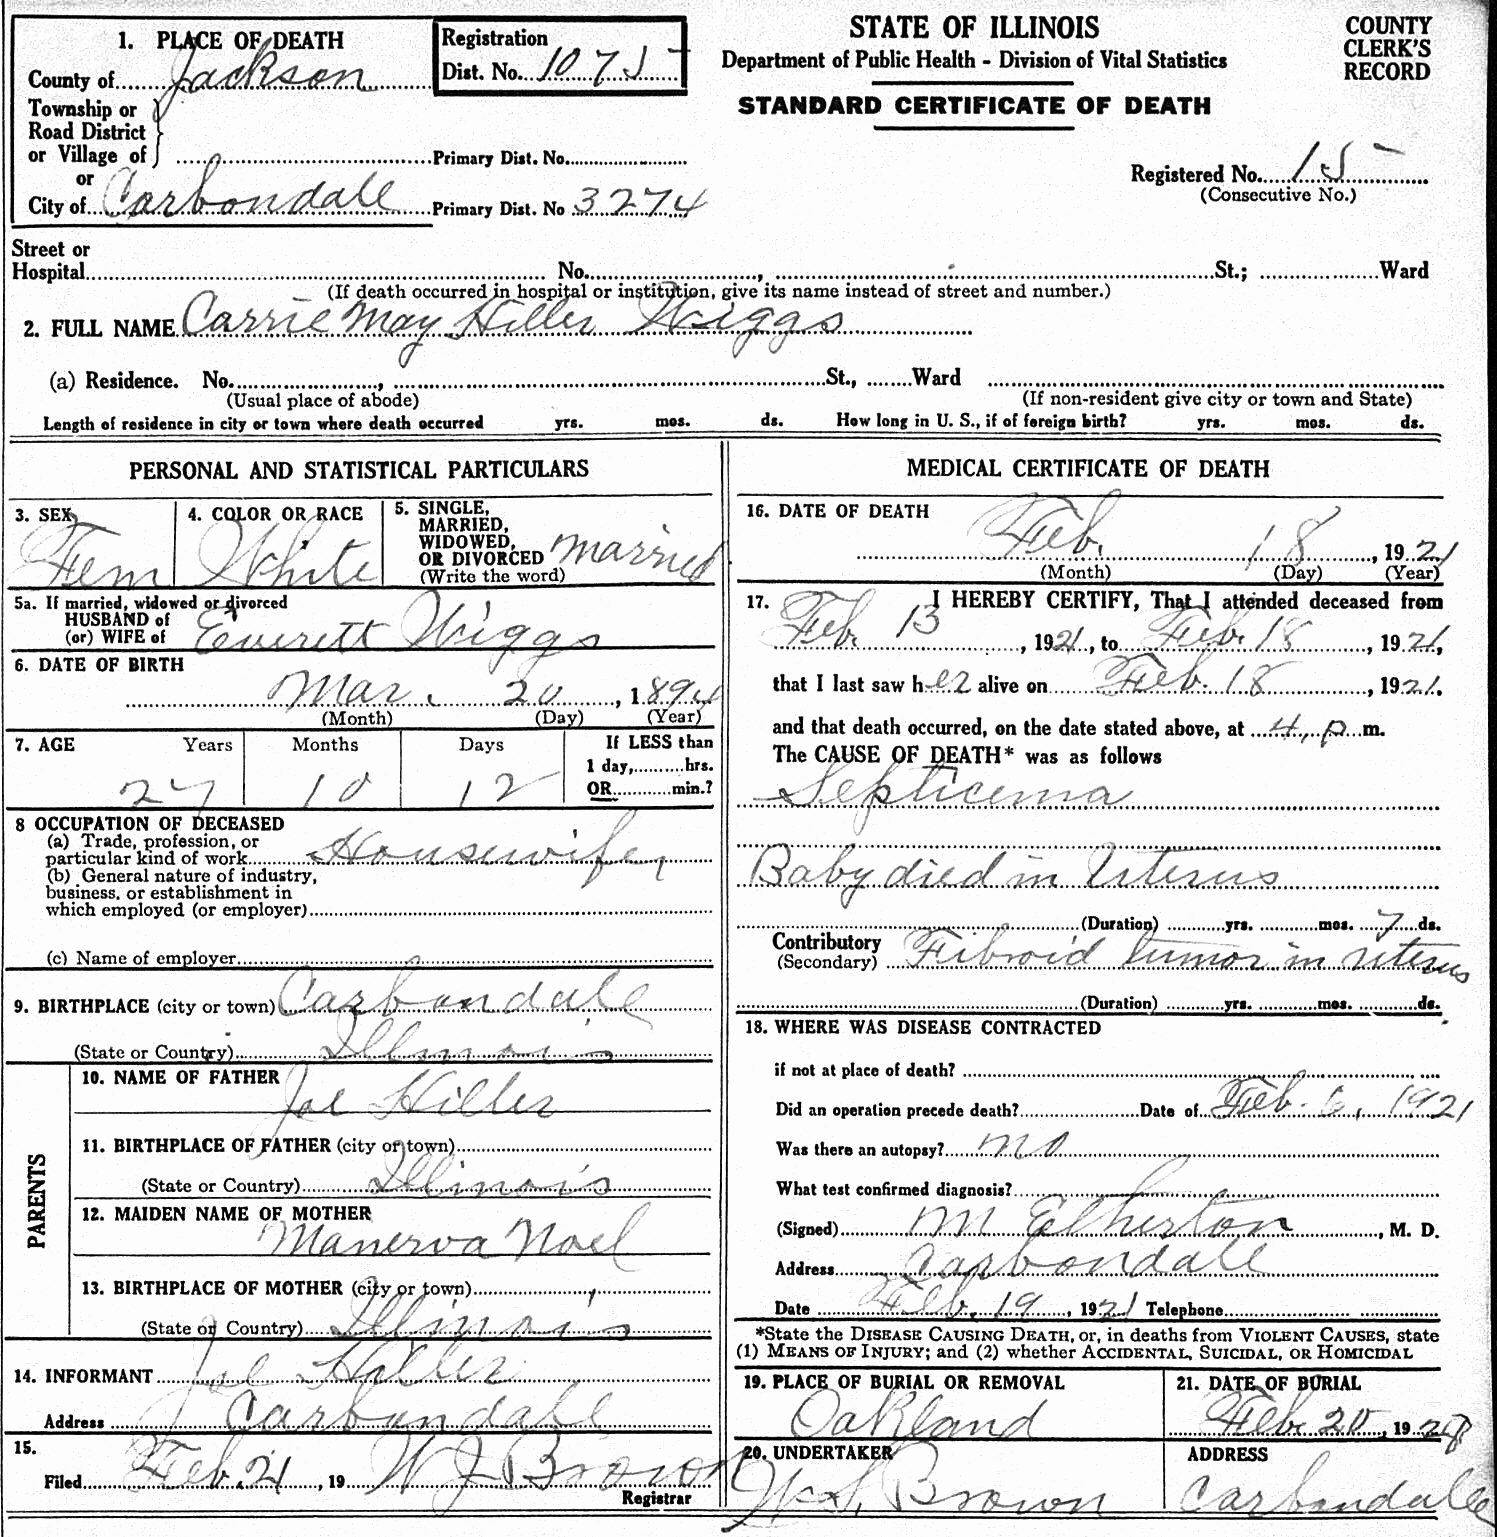 STATE OF ILLINOIS
Department of Public Health - Division of Vital Statistics
STANDARD CERTIFICATE OF DEATH
COUNTY
CLERK'S
RECORD
1. PLACE OF DEATH
County of Jackson
Registration
Dist. No. 1075
Township or
Road District
or Village of
Primary Dist. No.
or
City of Carbondale Primary Dist. No 3274
Registered No. 15
(Consecutive No.)
Street or
Hospital No. , St.; Ward
(If death occurred in hospital or institution, give its name instead of street and number.)
2. FULL NAME Carrie May Hiller Wiggs
(a) Residence. No. , St., Ward
(Usual place of abode) (If non-resident give city or town and State)
Length of residence in city or town where death occurred yrs. mos. ds. How long in U. S., if of foreign birth? yrs. mos. ds.
PERSONAL AND STATISTICAL PARTICULARS
3. SEX
Fem
4. COLOR OR RACE
White
5. SINGLE,
MARRIED,
WIDOWED,
OR DIVORCED married
(Write the word)
5a. If married, widowed or divorced
HUSBAND of
(or) WIFE of Everett Wiggs
6. DATE OF BIRTH
Mar. 20, 1894
(Month) (Day) (Year)
7. AGE Years Months Days
27 10 12
If LESS than
1 day, hrs.
OR min.?
8 OCCUPATION OF DECEASED
(a) Trade, profession, or
particular kind of work Housewife
(b) General nature of industry,
business. or establishment in
which employed (or employer)
(c) Name of employer
9. BIRTHPLACE (city or town) Carbondale
(State or Country) Illinois
PARENTS
10. NAME OF FATHER
Joe Hiller
11. BIRTHPLACE OF FATHER (city or town)
(State or Country) Illinois
12. MAIDEN NAME OF MOTHER
Manerva Noel
13. BIRTHPLACE OF MOTHER (city or town)
(State or Country) Illinois
14. INFORMANT Joe Hiller
Address Carbondale
15.
Filed Feb. 21, 19 W J Brown
Registrar
MEDICAL CERTIFICATE OF DEATH
16. DATE OF DEATH
Feb. 18, 1921
(Month) (Day) (Year)
17. I HEREBY CERTIFY, That I attended deceased from
Feb. 13, 1921, to Feb. 18, 1921,
that I last saw her alive on Feb. 18, 1921.
and that death occurred, on the date stated above, at 4, p m.
The CAUSE OF DEATH* was as follows
Septicema
Baby died in Uterus
(Duration) yrs. mos. 7 ds.
Contributory
(Secondary) Fibroid tumor in uterus
(Duration) yrs. mos. ds.
18. WHERE WAS DISEASE CONTRACTED
if not at place of death?
Did an operation precede death? Date of Feb. 6, 1921
Was there an autopsy? no
What test confirmed diagnosis?
(Signed) M Etherton, M. D.
Address Carbondale
Date Feb. 19, 1921 Telephone
*State the DISEASE CAUSING DEATH, or, in deaths from VIOLENT CAUSES, state
(1) MEANS OF INJURY; and (2) whether ACCIDENTAL, SUICIDAL, OR HOMICIDAL
19. PLACE OF BURIAL OR REMOVAL
Oakland
21. DATE OF BURIAL
Feb. 20, 19
20. UNDERTAKER
Brown
ADDRESS
Carbondale